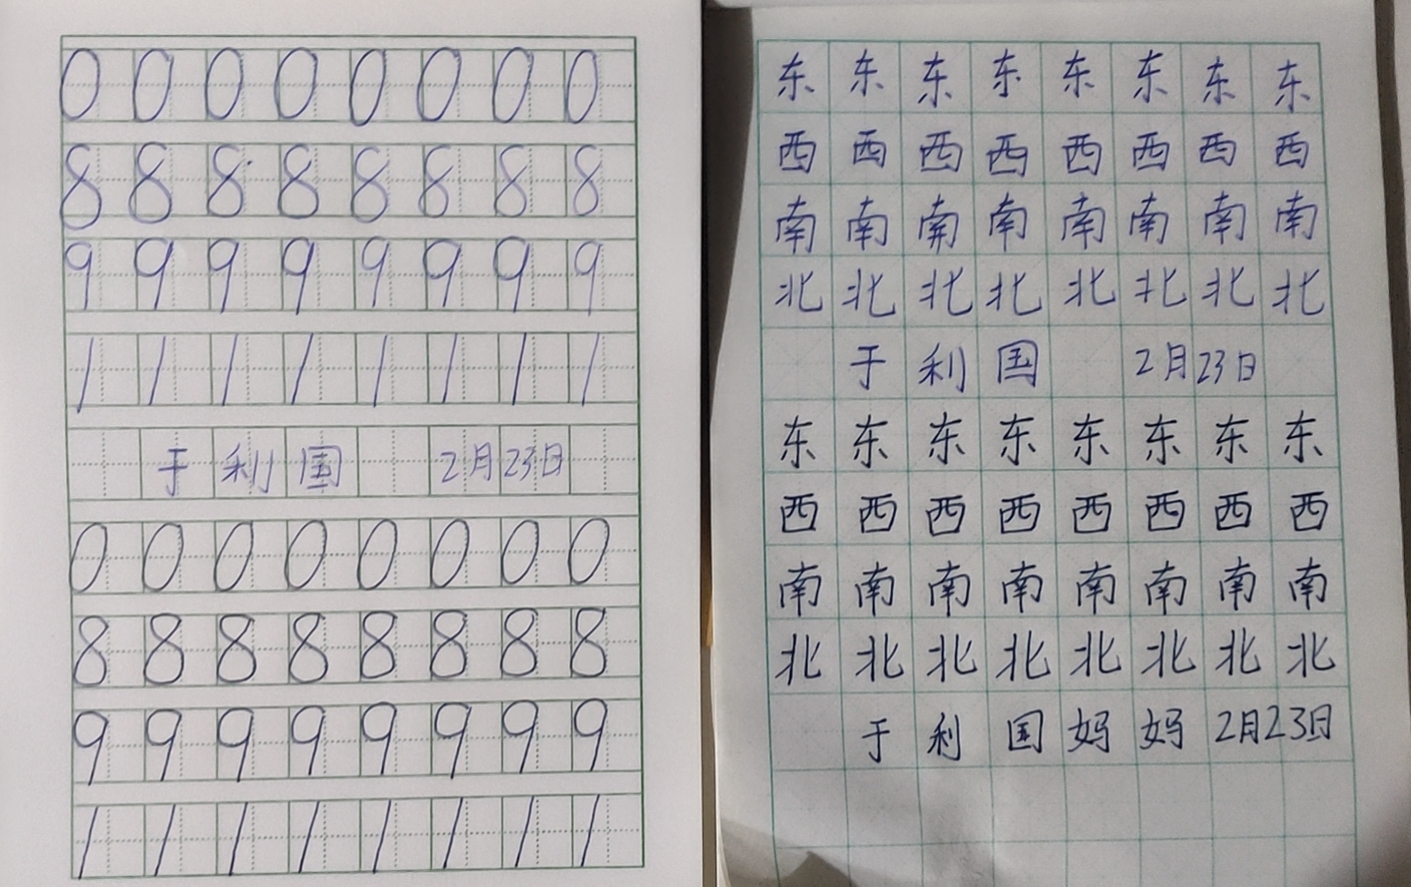 0 0 0 0 0 0 0 0
8 8 8 8 8 8 8 8
9 9 9 9 9 9 9 9
1 1 1 1 1 1 1 1
于利国 2月23日
0 0 0 0 0 0 0 0
8 8 8 8 8 8 8 8
9 9 9 9 9 9 9 9
1 1 1 1 1 1 1 1
东东东东东东东东
西西西西西西西西
南南南南南南南南
北北北北北北北北
于利国 2月23日
东东东东东东东东
西西西西西西西西
南南南南南南南南
北北北北北北北北
于利国妈妈 2月23日